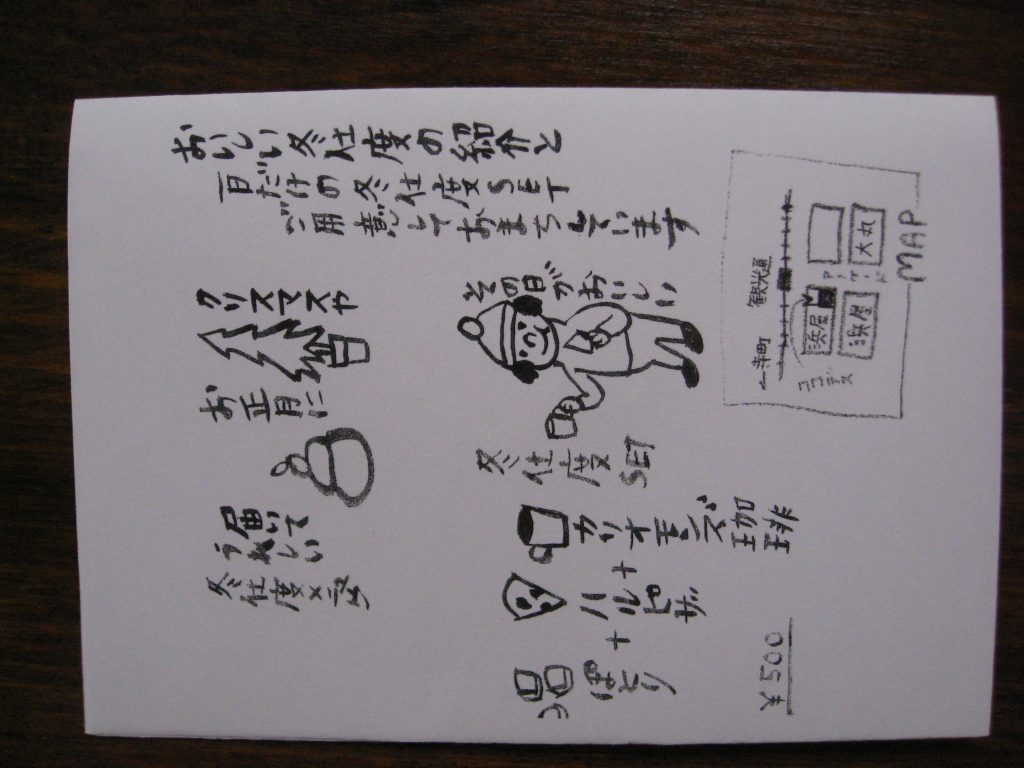 おいしい冬仕度の紹介と
豆だけの冬仕度SET
ご用意しておまちしています
クリスマスや
お正月に
届いて
うれしい
冬仕度
その日がおいしい
冬仕度SET
カリオモンズ珈琲
+
ハルピザ
+
ぽとり
¥500
MAP
大丸
浜屋
浜屋
観光通
寺町
ココデス